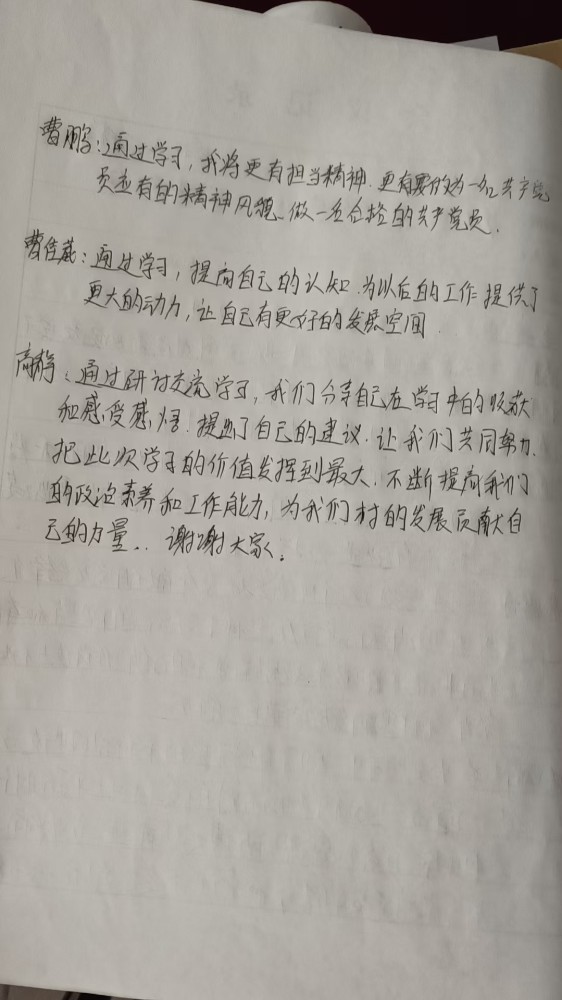 曹鹏：通过学习，我将更有担当精神.更有要作为一名共产党
员应有的精神风貌.做一名合格的共产党员.
曹佳葳：通过学习，提高自己的认知.为以后的工作提供了
更大的动力，让自己有更好的发展空间.
高静：通过研讨交流学习，我们分享自己在学习中的收获
和感受感悟.提出了自己的建议.让我们共同努力.
把此次学习的价值发挥到最大.不断提高我们
的政治素养和工作能力，为我们村的发展贡献自
己的力量..谢谢大家。